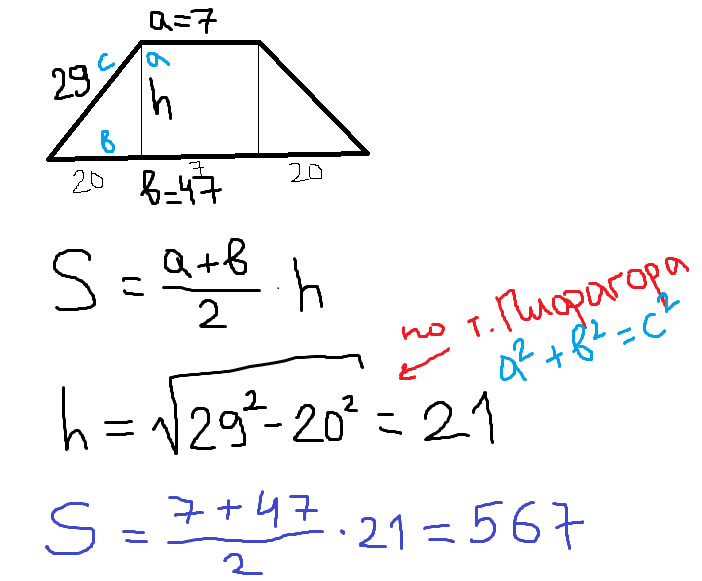 a=7
29 c a
h
в
20 7 20
в=47
S = a+в/2 · h
по т. Пифагора
a² + в² = c²
h = √29² - 20² = 21
S = 7+47/2 · 21 = 567